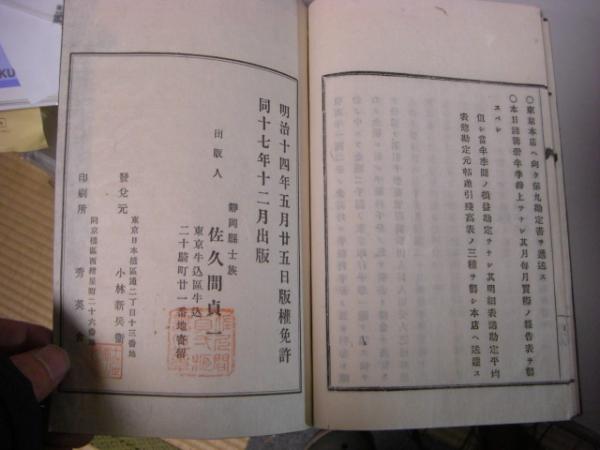 〇東京本店ヘ向タ第九勘定書ヲ遞送ス
〇本日諸帶半季締上ヲナシ其月每月實際ノ報告表ヲ製
スベシ
但シ當半季間ノ損益勘定ヲナシ其明細表諸勘定平均
表惣勘定元帳差引殘高表ノ三種ヲ製シ本店ヘ送達ス
明治十四年五月廿五日版權免許
同十七年十二月出版
靜岡縣士族
出版人 佐久間貞一
東京牛込區牛込
二十騎町廿一番地寄留
東京日本橋區通二丁目十三番地
發兌元 小林新兵衞
同京橋區西紺屋町二十六番地
印刷所 秀英舍
KU